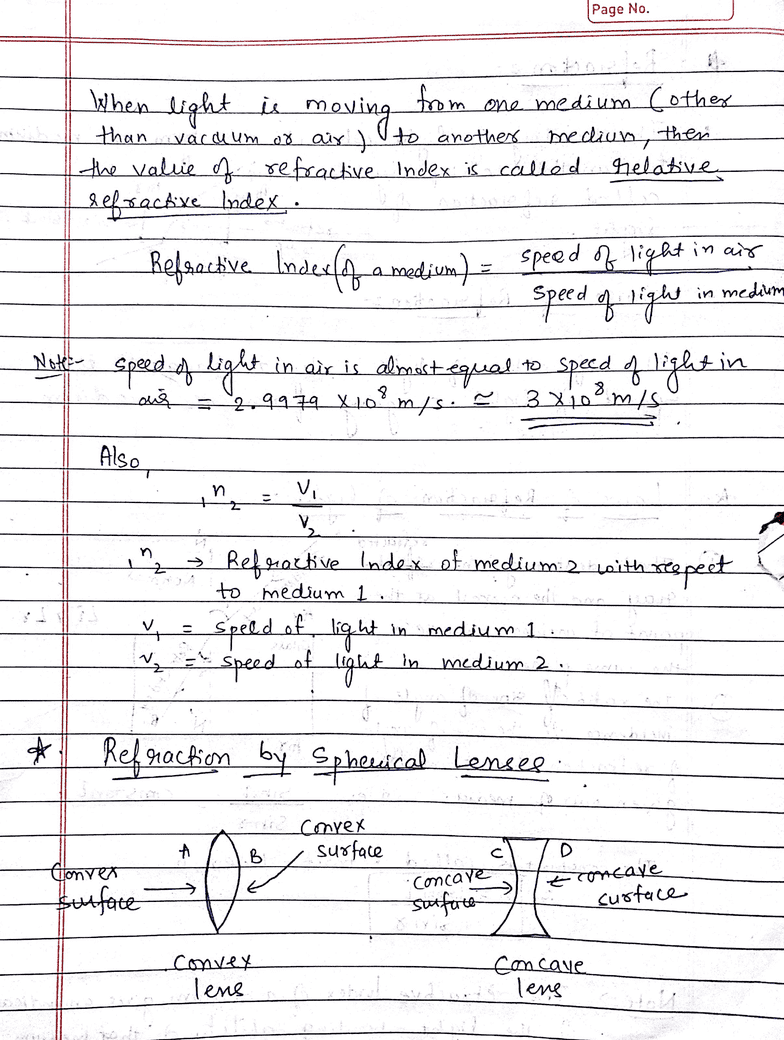 Page No.
When light is moving from one medium (other
than vacuum or air) to another medium, then
the value of refractive Index is called relative
refractive Index.
Refractive Index (of a medium) = speed of light in air / speed of light in medium
Note:- speed of light in air is almost equal to speed of light in
air = 2.9979 x10⁸ m/s. ≃ 3 x10⁸ m/s.
Also,
₁n₂ = V₁ / V₂.
₁n₂ → Refractive Index of medium 2 with respect
to medium 1.
v₁ = speed of light in medium 1.
v₂ = speed of light in medium 2.
* Refraction by Spherical Lenses.
Convex surface
A
B
Convex surface
concave surface
C
D
concave surface
Convex lens
Concave lens